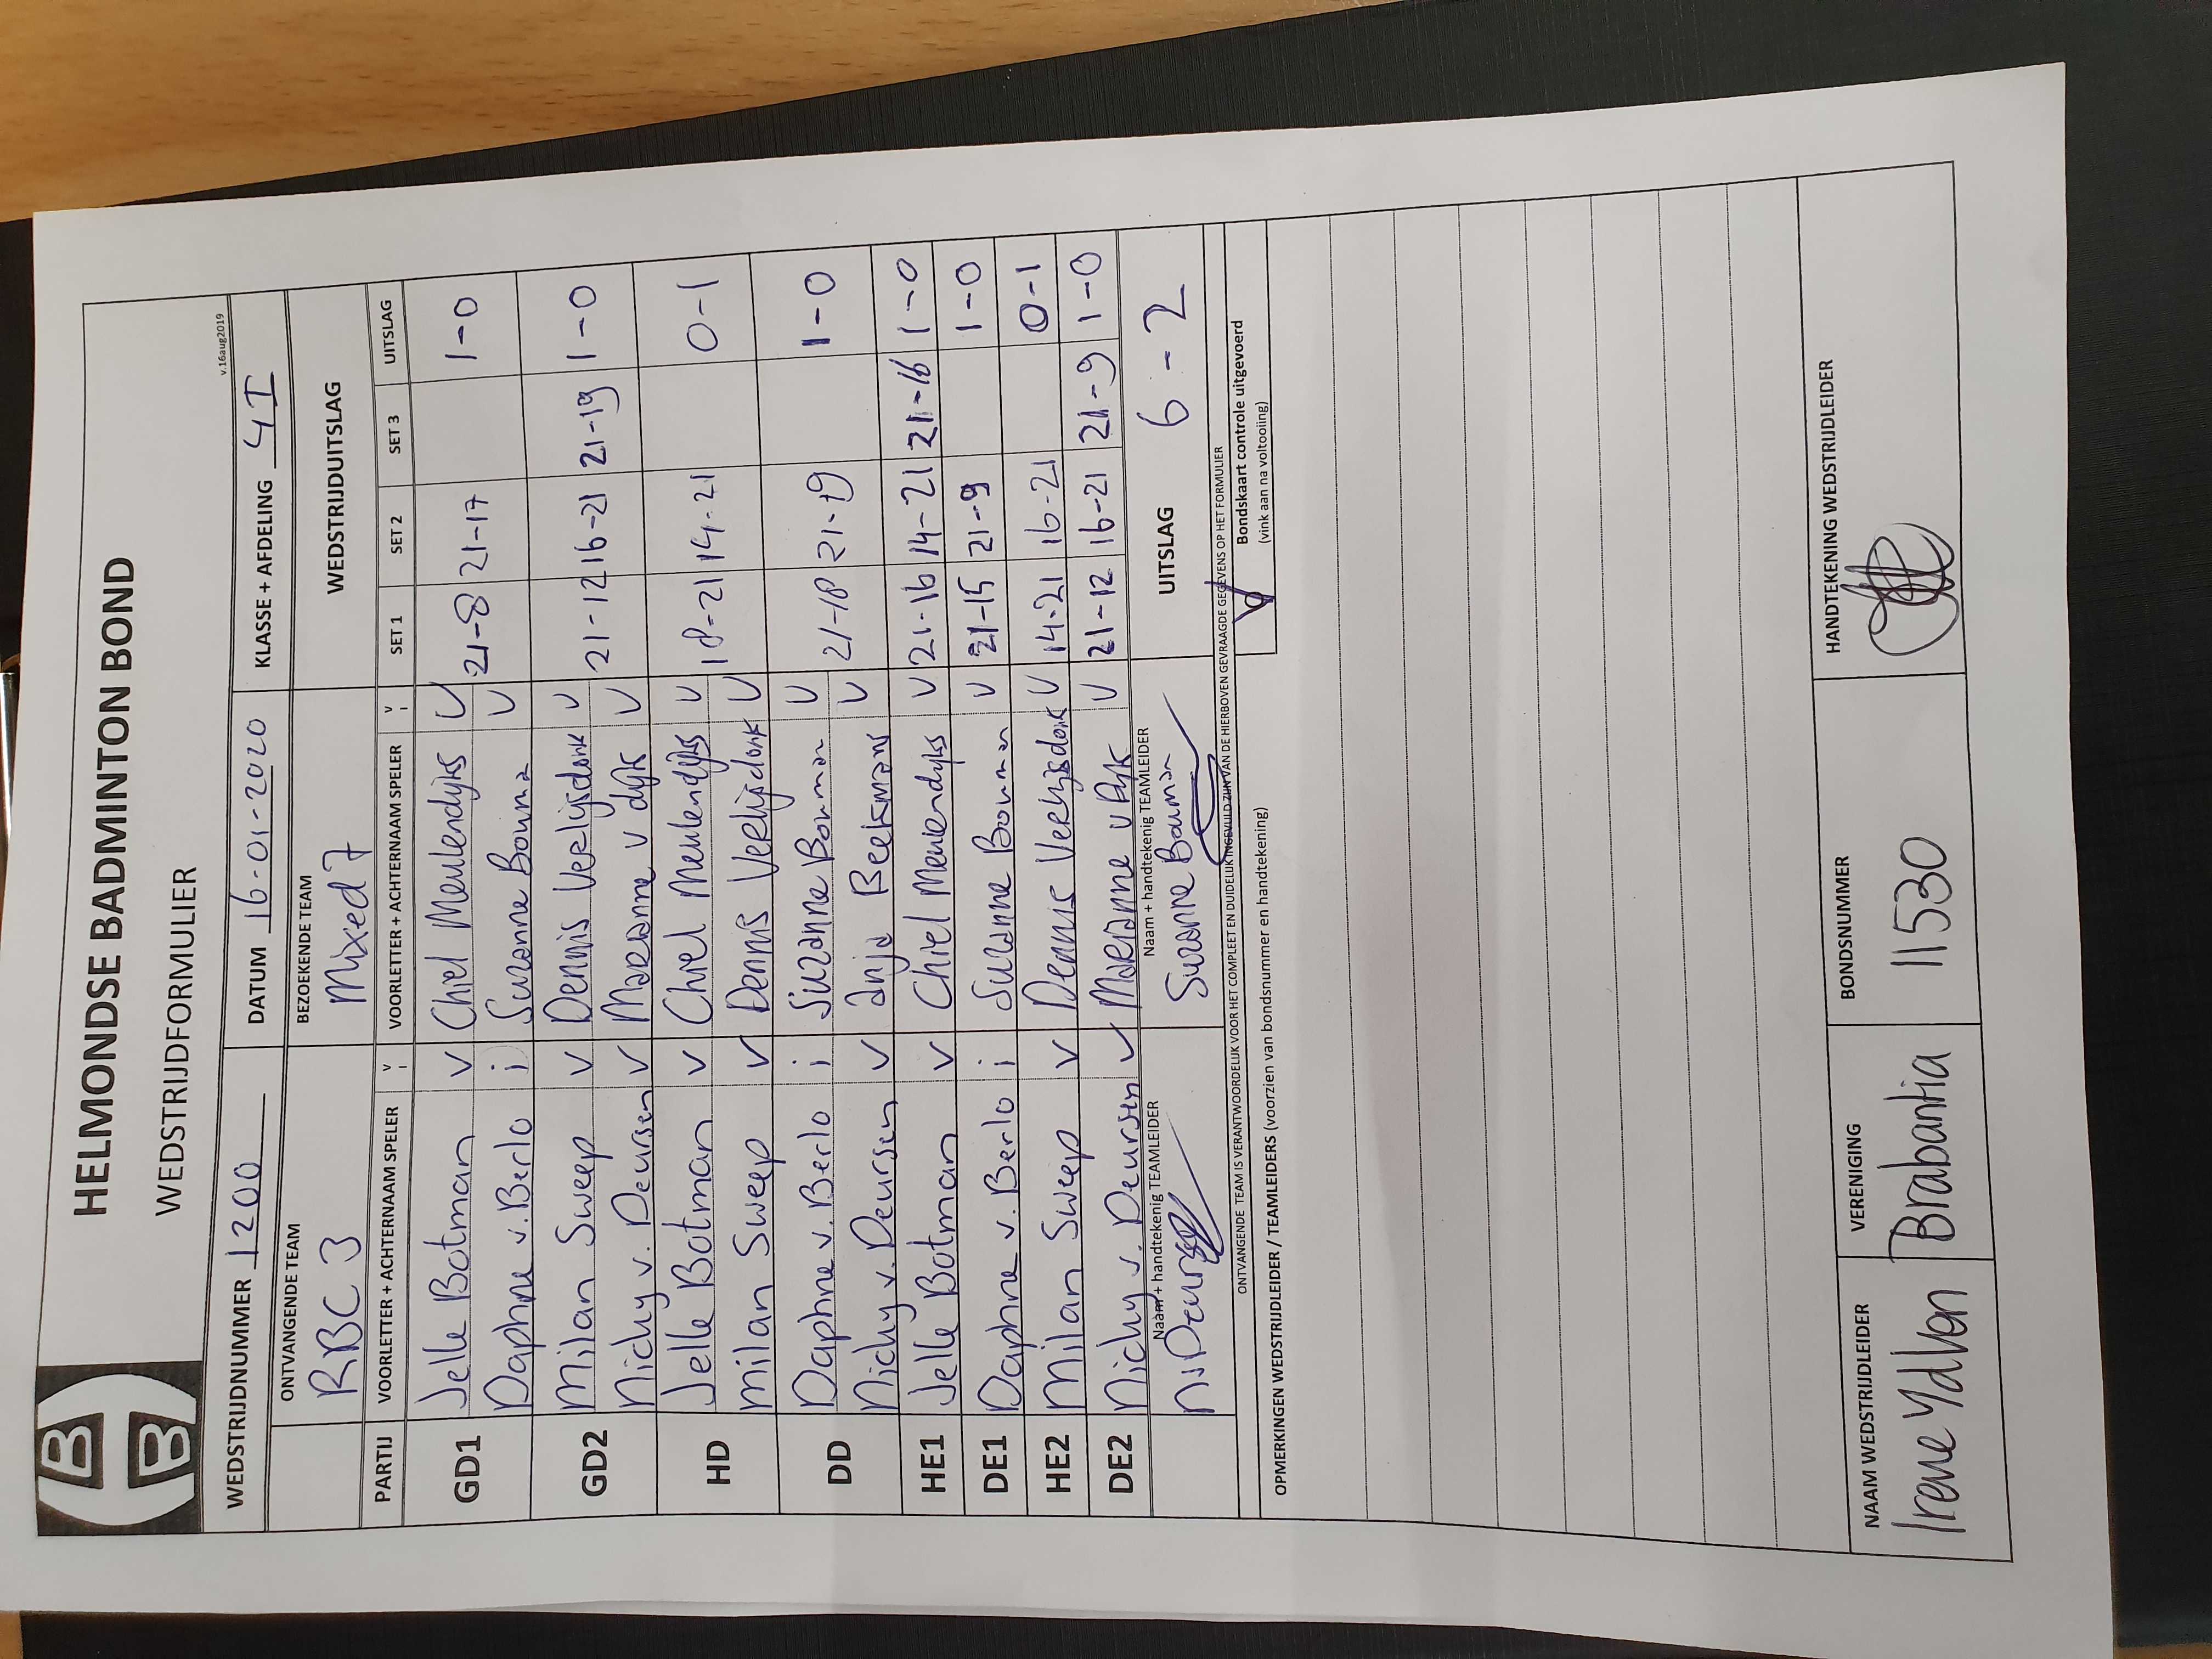 HELMONDSE BADMINTON BOND
WEDSTRIJDFORMULIER
v.16aug2019
WEDSTRIJDNUMMER 1200 DATUM 16-01-2020 KLASSE + AFDELING 4I
ONTVANGENDE TEAM BEZOEKENDE TEAM WEDSTRIJDUITSLAG
RBC 3 Mixed 7
PARTIJ VOORLETTER + ACHTERNAAM SPELER V i VOORLETTER + ACHTERNAAM SPELER V i SET 1 SET 2 SET 3 UITSLAG
GD1 Jelle Botman v Chiel Meulendijks v 21-8 21-17 1-0
Daphne v. Berlo i Suzanne Bouman v
GD2 Milan Sweep v Dennis Verlijsdonk v 21-12 16-21 21-19 1-0
Nicky v. Deursen v Marianne v dijk v
HD Jelle Botman v Chiel Meulendijks v 18-21 14-21 0-1
Milan Sweep v Dennis Verlijsdonk v
DD Daphne v. Berlo i Suzanne Bouman v 21-18 21-19 1-0
Nicky v. Deursen v Anja Beekmans v
HE1 Jelle Botman v Chiel Meulendijks v 21-16 14-21 21-16 1-0
DE1 Daphne v. Berlo i Suzanne Bouman v 21-15 21-9 1-0
HE2 Milan Sweep v Dennis Verlijsdonk v 14-21 16-21 0-1
DE2 Nicky v. Deursen v Marianne v Dijk v 21-12 16-21 21-9 1-0
Naam + handtekenig TEAMLEIDER Naam + handtekenig TEAMLEIDER UITSLAG 6-2
Suzanne Bouman
ONTVANGENDE TEAM IS VERANTWOORDELIJK VOOR HET COMPLEET EN DUIDELIJK INGEVULD ZIJN VAN DE HIERBOVEN GEVRAAGDE GEGEVENS OP HET FORMULIER
Bondskaart controle uitgevoerd
(vink aan na voltooiing)
OPMERKINGEN WEDSTRIJDLEIDER / TEAMLEIDERS (voorzien van bondsnummer en handtekening)
NAAM WEDSTRIJDLEIDER VERENIGING BONDSNUMMER HANDTEKENING WEDSTRIJDLEIDER
Irene Brabantia 11530